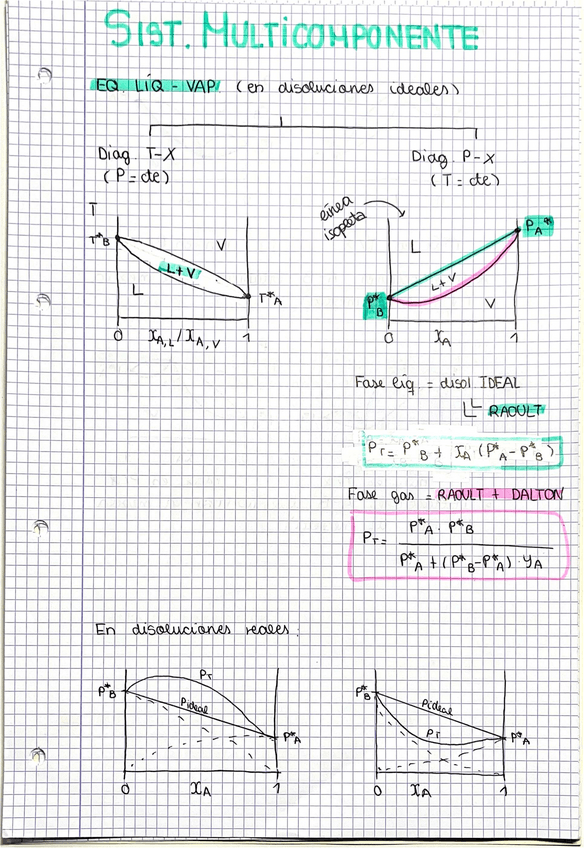 SIST. MULTICOMPONENTE
EQ. LÍQ - VAP (en disoluciones ideales)
Diag. T-X
(P = cte)
Diag. P-X
(T = cte)
T
T*B
V
L+V
L
T*A
0 XA,L/XA,V 1
línea
isopleta
L
PA*
L+V
P*B
V
0 XA 1
Fase líq. = disol IDEAL
RAOULT
PT = P*B + XA (P*A - P*B)
Fase gas = RAOULT + DALTON
PT = P*A · P*B
P*A + (P*B - P*A) · yA
En disoluciones reales:
P*B
PT
Pideal
P*A
0 XA 1
P*B
Pideal
PT
P*A
0 XA 1